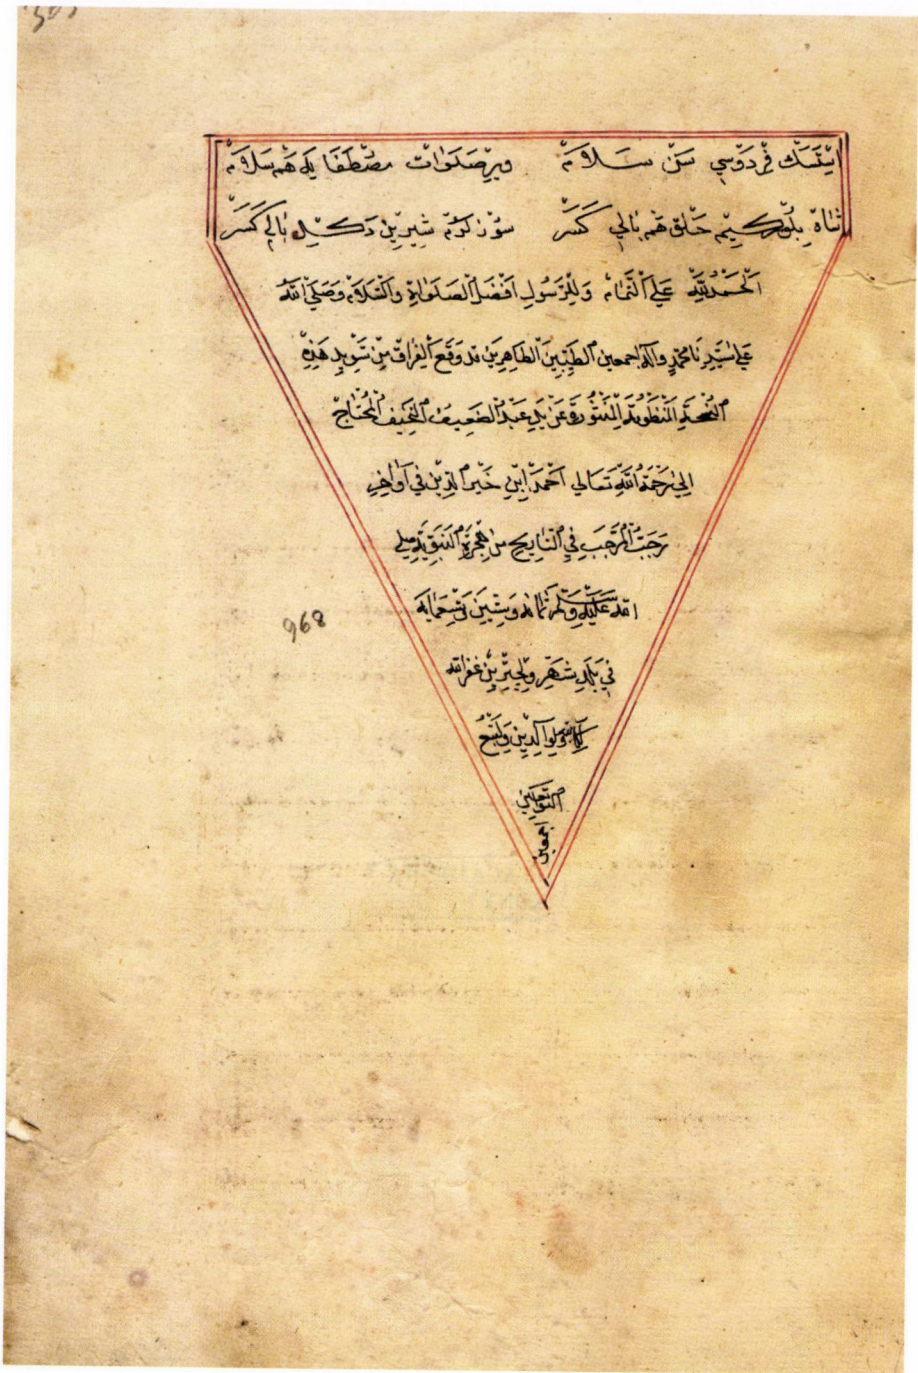 ایترسك فردوسي سن سلامه ویر صلوات مصطفا یه هم سلامه
شاه بلور كیم حلق هم بالي كسر سوزلرم شیرین دكل بالم كسر
اَلْحَمْدُ لِلّٰهِ عَلَي اَلتَّمَامْ وَلِلرَّسُولِ اَفْضَلُ اَلصَّلَوَاةِ وَاَلسَّلَامْ وَصَلَّي اَللّٰهُ
عَلَي سَيِّدِنَا مُحَمَّدٍ وَآلِهِ اجمعين اَلطَّيِّبِينَ اَلطَّاهِرِينَ قد وَقَعَ اَلْفِرَاقُ مِنْ تَسْوِيدِ هَذِهِ
اَلنُّسْخَةِ اَلْمَنْظُومَةِ اَلْمَنْثُورَةِ عَنْ يَدِ عَبْدُ اَلضَعِيفْ اَلنَّحِيفْ اَلْمُحْتَاجْ
اِلَيٰ رَحْمَةِ اَللّٰهِ تَعَالي اَحْمَدْ اِبْنِ خَيْرُ الدِّينْ فِي اَوَاخِرِ
رَجَبُ اَلْمُرَجَّبِ فِي اَلتَّارِيحِ مِنْ هِجْرَةِ اَلنَّبَوِيَّةِ صلي
الله عَلَيْهِ وَسَلَّمَ ثَمَانْ وَسِتِّينَ وَتِسْعَمَايَه
968
في بَلَدِ شَهْرِ غفر الله
وَلِوَالِدَيْنِ
اجمعين